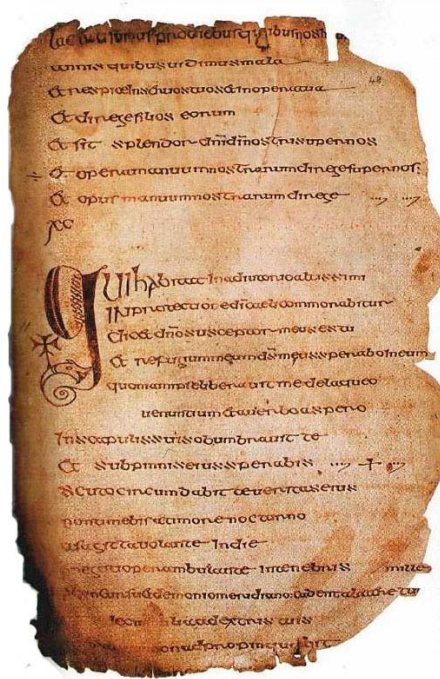 laetati sumus pro diebus quibus nos
annis quibus uidimus mala
48
Et respice in seruos tuos et in opera tua
Et dirige filios eorum
Et sit splendor dni di nostri super nos
÷ Et opera manuum nostrarum dirige super nos:
Et opus manuum nostrarum dirige
xc
Qui habitat in adiutorio altissimi
IN protectione di caeli commorabitur
Dicet dno susceptor meus es tu
Et refugium meum ds meus sperabo in eum
quoniam ipse liberauit me de laqueo
uenantium et a uerbo aspero
In scapulis suis obumbrauit te
Et sub pinnis eius sperabis
Scuto circumdabit te ueritas eius
non timebis a timore nocturno
a sagitta uolante in die
negotio perambulante in tenebris mille
demonio meridiano cadent a latere tuo
decem milia a dextris tuis
non adpropinquabit